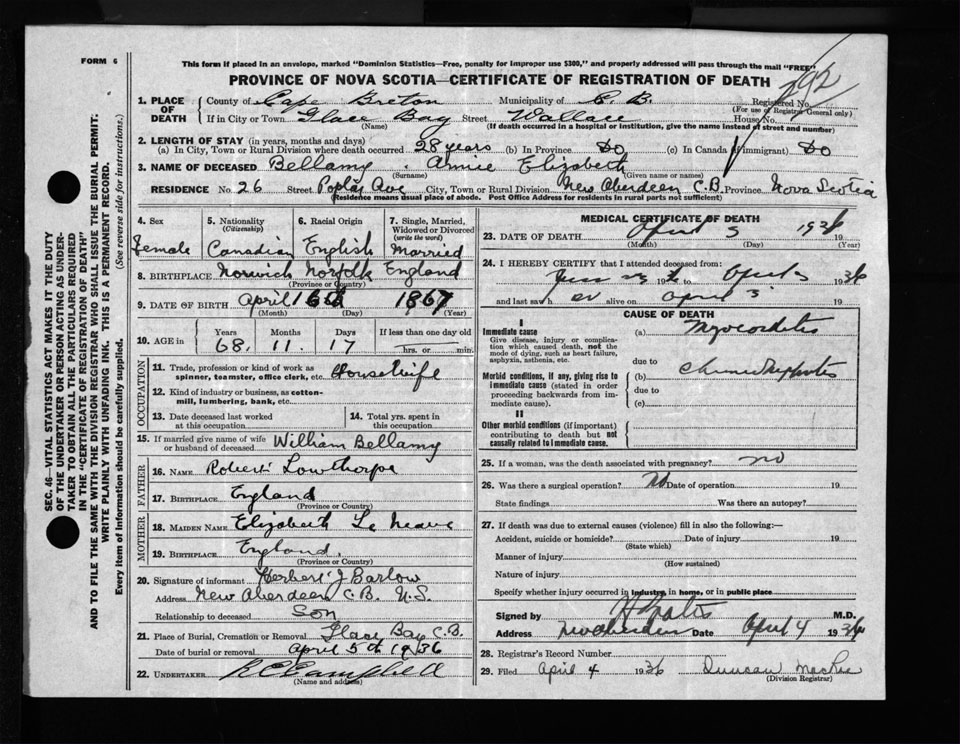 FORM 6
This form if placed in an envelope, marked "Dominion Statistics—Free, penalty for improper use $300," and properly addressed will pass through the mail "FREE"
PROVINCE OF NOVA SCOTIA—CERTIFICATE OF REGISTRATION OF DEATH
SEC. 46—VITAL STATISTICS ACT MAKES IT THE DUTY
OF THE UNDERTAKER OR PERSON ACTING AS UNDER-
TAKER TO OBTAIN ALL THE PARTICULARS REQUIRED
IN THE "CERTIFICATE OF REGISTRATION OF DEATH"
AND TO FILE THE SAME WITH THE DIVISION REGISTRAR WHO SHALL ISSUE THE BURIAL PERMIT.
WRITE PLAINLY WITH UNFADING INK. THIS IS A PERMANENT RECORD.
Every item of information should be carefully supplied. (See reverse side for instructions.)
1. PLACE OF DEATH
County of Cape Breton Municipality of C. B. Registered No. 292
(For use of Registrar General only)
If in City or Town Glace Bay Street Wallace House No.
(Name) (If death occurred in a hospital or institution, give the name instead of street and number)
2. LENGTH OF STAY (in years, months and days)
(a) In City, Town or Rural Division where death occurred 28 years (b) In Province Do (c) In Canada (if immigrant) Do
3. NAME OF DECEASED Bellamy Annie Elizabeth
(Surname) (Given name or names)
RESIDENCE No. 26 Street Poplar Ave City, Town or Rural Division New Aberdeen C.B. Province Nova Scotia
(Residence means usual place of abode. Post Office Address for residents in rural parts not sufficient)
4. Sex 5. Nationality (Citizenship) 6. Racial Origin 7. Single, Married, Widowed or Divorced (write the word)
Female Canadian English Married
8. BIRTHPLACE Norwich Norfolk England
(Province or Country)
9. DATE OF BIRTH April 16th 1867
(Month) (Day) (Year)
10. AGE in Years Months Days If less than one day old
68 11 17 hrs. or min.
OCCUPATION
11. Trade, profession or kind of work as spinner, teamster, office clerk, etc. Housewife
12. Kind of industry or business, as cotton-mill, lumbering, bank, etc.
13. Date deceased last worked at this occupation 14. Total yrs. spent in this occupation
15. If married give name of wife or husband of deceased William Bellamy
FATHER
16. NAME Robert Lowthorpe
17. BIRTHPLACE England
(Province or Country)
MOTHER
18. MAIDEN NAME Elizabeth Le Neave
19. BIRTHPLACE England.
(Province or Country)
20. Signature of informant Herbert J Barlow
Address New Aberdeen C.B. N.S.
Relationship to deceased Son
21. Place of Burial, Cremation or Removal Glace Bay C.B.
Date of burial or removal April 5th 1936
22. UNDERTAKER Campbell
(Name and address)
MEDICAL CERTIFICATE OF DEATH
23. DATE OF DEATH April 3 1936 19
(Month) (Day) (Year)
24. I HEREBY CERTIFY that I attended deceased from:
19 to April 3 1936
and last saw her alive on April 3 19
CAUSE OF DEATH
I
Immediate cause
Give disease, injury or complication which caused death, not the mode of dying, such as heart failure, asphyxia, asthenia, etc.
(a) Myocarditis
due to
Morbid conditions, if any, giving rise to immediate cause (stated in order proceeding backwards from immediate cause).
(b) Chronic Nephritis
due to
(c)
II
Other morbid conditions (if important) contributing to death but not causally related to immediate cause.
25. If a woman, was the death associated with pregnancy? no
26. Was there a surgical operation? No Date of operation 19
State findings Was there an autopsy?
27. If death was due to external causes (violence) fill in also the following:—
Accident, suicide or homicide? Date of injury 19
(State which)
Manner of injury
(How sustained)
Nature of injury
Specify whether injury occurred in industry, in home, or in public place
Signed by M.D.
Address New Aberdeen Date April 4 1936
28. Registrar's Record Number
29. Filed April 4 1936 Duncan
(Division Registrar)